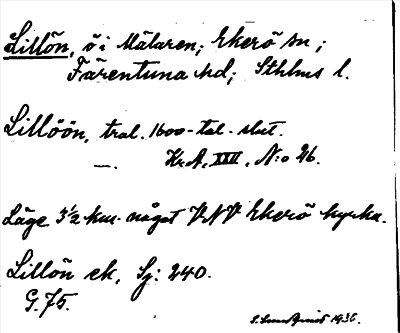 Lillön, ö i Mälaren; Ekerö sn;
Färentuna hd; Sthlms l.
Lillöön, tral. 1600-tal-slut.
—. Kr.A, XXII, N:o 26.
Läge 3½ km. något VNV Ekerö kyrka.
Lillön ek, Sj: 240.
G.75.
1936.